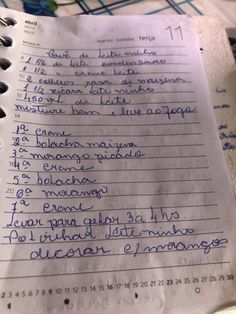 abril
martes tuesday terça
11
Pavê de leite ninho
1 1/2 de leite condensado
1 1/2 " creme leite
2 colheres rasa de maizena
1 1/2 xícara leite ninho
450 ml de leite
misture bem e leve ao fogo
1ª creme
2ª bolacha maizena
3ª morango picado
4ª creme
5ª bolacha
6ª morango
7ª creme
Levar para gelar 3 a 4 hs
Polvilhar leite ninho
decorar c/ morangos
2 3 4 5 6 7 8 9 10 11 12 13 14 15 16 17 18 19 20 21 22 23 24 25 26 27 28 29 30